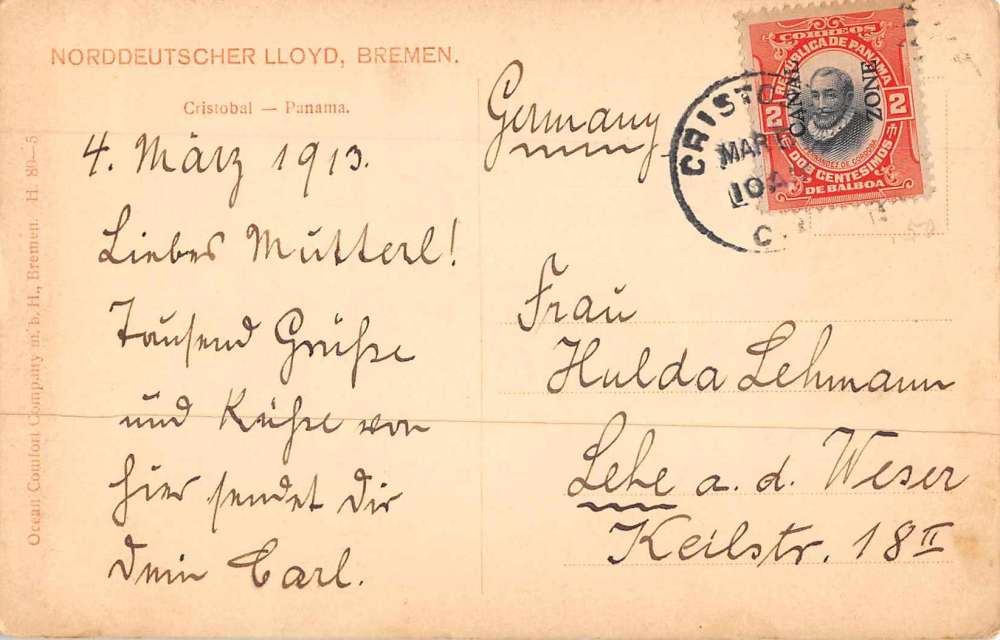 NORDDEUTSCHER LLOYD, BREMEN.
Cristobal — Panama.
4. März 1913.
Liebes Mutterl!
Tausend Grüße
und Küße von
hier sendet Dir
Dein Carl.
Ocean Comfort Company m. b. H., Bremen. H 80—5
Germany
CORREOS
REPUBLICA DE PANAMA
CANAL
ZONE
2
2
HERNANDEZ DE CORDOBA
DOS CENTESIMOS
DE BALBOA
CRISTO
MAR
10 A
C.
Frau
Hulda Lehmann
Lehe a. d. Weser
Keilstr. 18 II
50